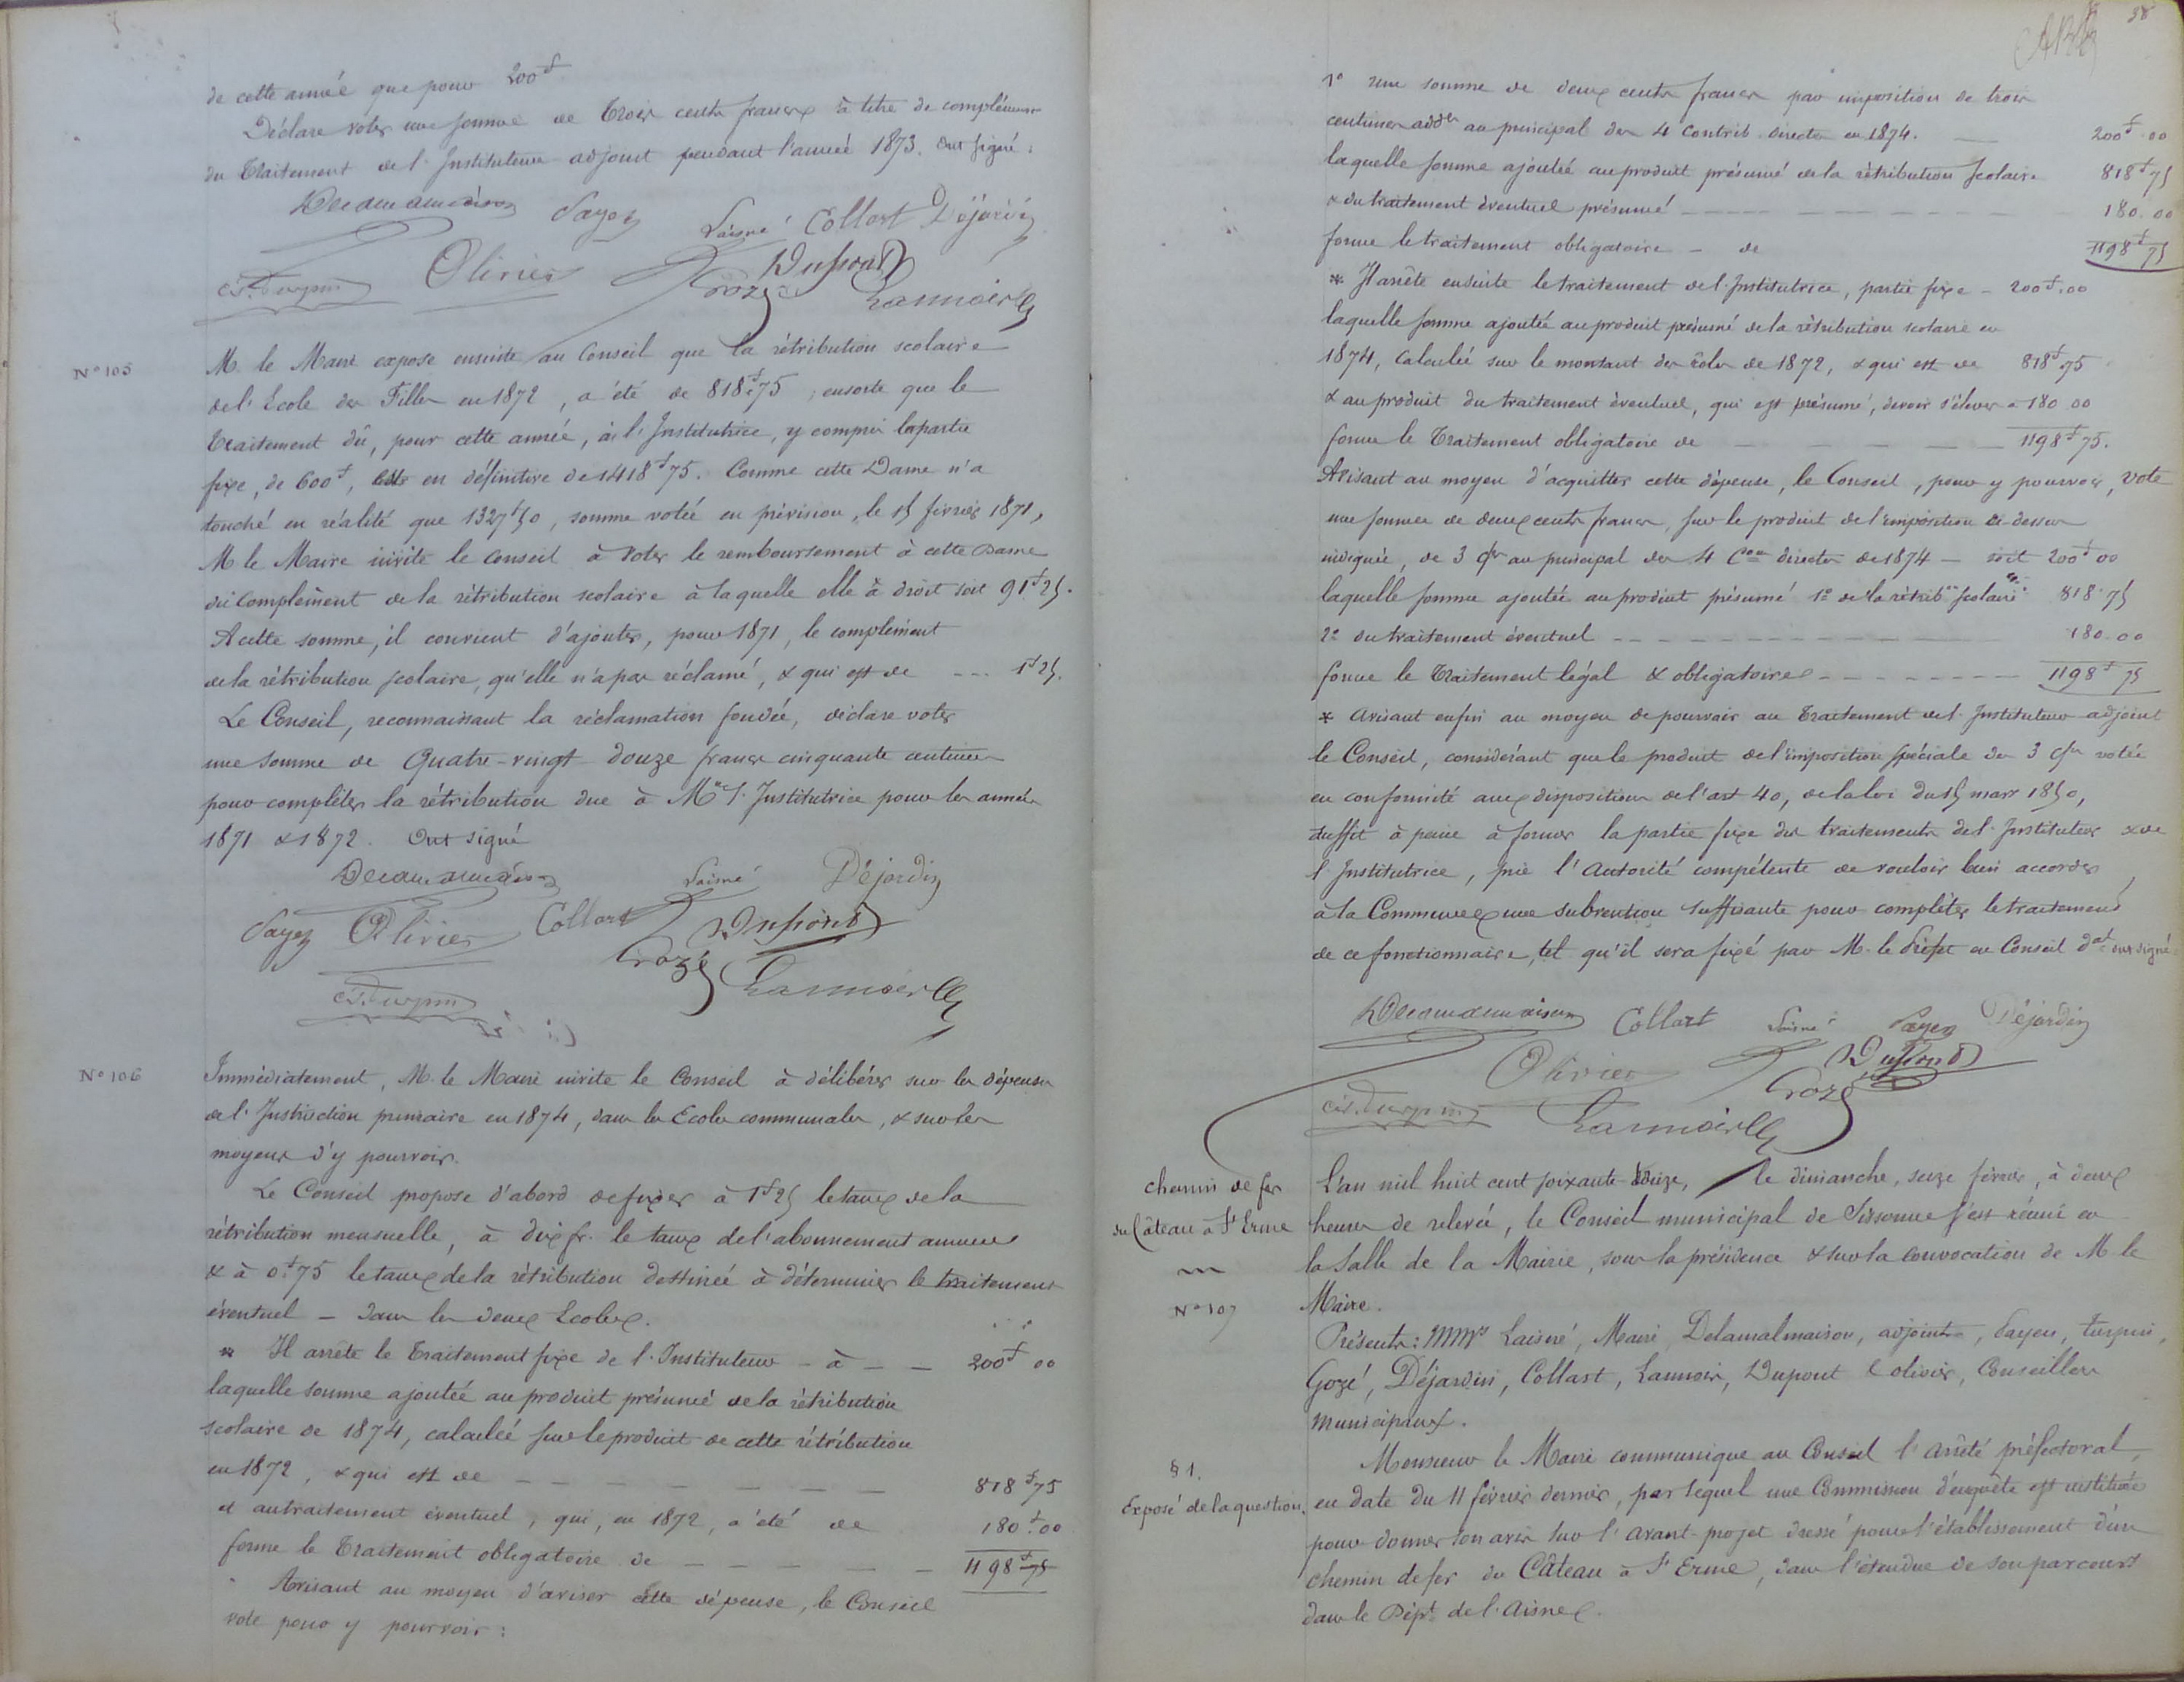 de cette année que pour 200f
Déclare voter une somme de Trois cents francs à titre de complément
du Traitement de l'Instituteur adjoint pendant l'année 1873. Ont signé :
Delamalmaison Payen Laisné Collart Déjardin
Turpin Olivier Gozé Dupont Lannois
N° 105
M. le Maire expose ensuite au Conseil que la rétribution scolaire
de l'Ecole des Filles en 1872, a été de 818f75, ensorte que le
Traitement dû, pour cette année, à l'Institutrice, y compris la partie
fixe, de 600f, est en définitive de 1418f75. Comme cette Dame n'a
touché en réalité que 1327f50, somme votée en prévision, le 15 février 1871,
M le Maire invite le Conseil à voter le remboursement à cette Dame
du complément de la rétribution scolaire à laquelle elle à droit soit 91f25.
A cette somme, il convient d'ajouter, pour 1871, le complément
de la rétribution scolaire, qu'elle n'a pas réclamé, & qui est de --- 1f25.
Le Conseil, reconnaissant la réclamation fondée, déclare voter
une somme de Quatre-vingt douze francs cinquante centimes
pour compléter la rétribution due à Me l'Institutrice pour les années
1871 & 1872. Ont signé
Delamalmaison Laisné Déjardin
Payen Olivier Collart Dupont
Gozé Lannois
Turpin
N° 106
Immédiatement, M. le Maire invite le Conseil à délibérer sur les dépenses
de l'Instruction primaire en 1874, dans les Ecoles communales, & sur les
moyens d'y pourvoir.
Le Conseil propose d'abord de fixer à 1f25 le taux de la
rétribution mensuelle, à dix fr. le taux de l'abonnement annuel
& à 0f75 le taux de la rétribution destinée à déterminer le traitement
éventuel – dans les deux Ecoles.
* Il arrête le Traitement fixe de l'Instituteur – à – – 200f 00
laquelle somme ajoutée au produit présumé de la rétribution
scolaire de 1874, calculée sur le produit de cette rétribution
en 1872, & qui est de – – – – – – 818f75
et au traitement éventuel, qui, en 1872, a été de 180f.00
forme le Traitement obligatoire de – – – – – 1198f75
Avisant au moyen d'aviser cette dépense, le Conseil
vote pour y pourvoir :
38
1° une somme de deux cents francs par imposition de trois
centimes addels au principal des 4 Contrib. directes en 1874. — 200f.00
laquelle somme ajoutée au produit présumé de la rétribution scolaire 818f75
& du traitement éventuel présumé – – – – – 180.00
forme le traitement obligatoire – de 1198f75
* Il arrête ensuite le traitement de l'Institutrice, partie fixe – 200f.00
laquelle somme ajoutée au produit présumé de la rétribution scolaire en
1874, calculée sur le montant des rôles de 1872, & qui est de 818f75
& au produit du traitement éventuel, qui est présumé, devoir s'élever à 180 00
forme le Traitement obligatoire de – – – – 1198f75.
Avisant au moyen d'acquitter cette dépense, le Conseil, pour y pourvoir, vote
une somme de deux cents francs, sur le produit de l'imposition ci-dessus
indiquée, de 3 ces au principal des 4 Cons directes de 1874 – soit 200f00
laquelle somme ajoutée au produit présumé 1° de la rétribon scolaire 818.75
2° du traitement éventuel – – – – – 180.00
forme le Traitement légal & obligatoire – – – – – 1198f75
* Avisant enfin au moyen de pourvoir au Traitement de l'Instituteur-adjoint
le Conseil, considérant que le produit de l'imposition spéciale des 3 ces votée
en conformité aux dispositions de l'art 40, de la loi du 15 mars 1850,
suffit à peine à former la partie fixe des traitements de l'Instituteur & de
l'Institutrice, prie l'Autorité compétente de vouloir bien accorder
à la Commune une subvention suffisante pour compléter le traitement
de ce fonctionnaire, tel qu'il sera fixé par M. le Préfet en Conseil dal. Ont signé
Delamalmaison Collart Laisné Payen Déjardin
Olivier Dupont
Gozé
Turpin Lannois
Chemin de fer
du Câteau à St Erme
N° 107
L'an mil huit cent soixante-treize, le dimanche, seize février, à deux
heures de relevée, le Conseil municipal de Sissonne s'est réuni en
la Salle de la Mairie, sous la présidence & sur la convocation de M. le
Maire.
Présents : MMrs Laisné, Maire, Delamalmaison, adjoint, Payen, Turpin,
Gozé, Déjardin, Collart, Lannois, Dupont & Olivier, Conseillers
municipaux.
§ 1.
Exposé de la question.
Monsieur le Maire communique au Conseil l'arrêté préfectoral,
en date du 11 février dernier, par lequel une Commission d'enquête est instituée
pour donner son avis sur l'avant-projet dressé pour l'établissement d'un
chemin de fer du Câteau à St Erme, dans l'étendue de son parcours
dans le Dépt. de l'Aisne.